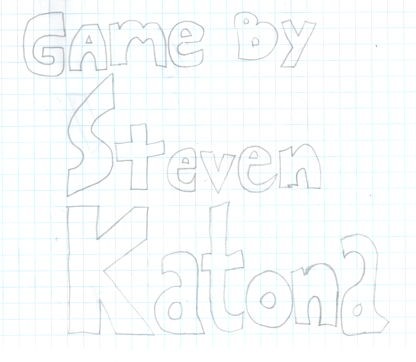 Game By
Steven
Katona